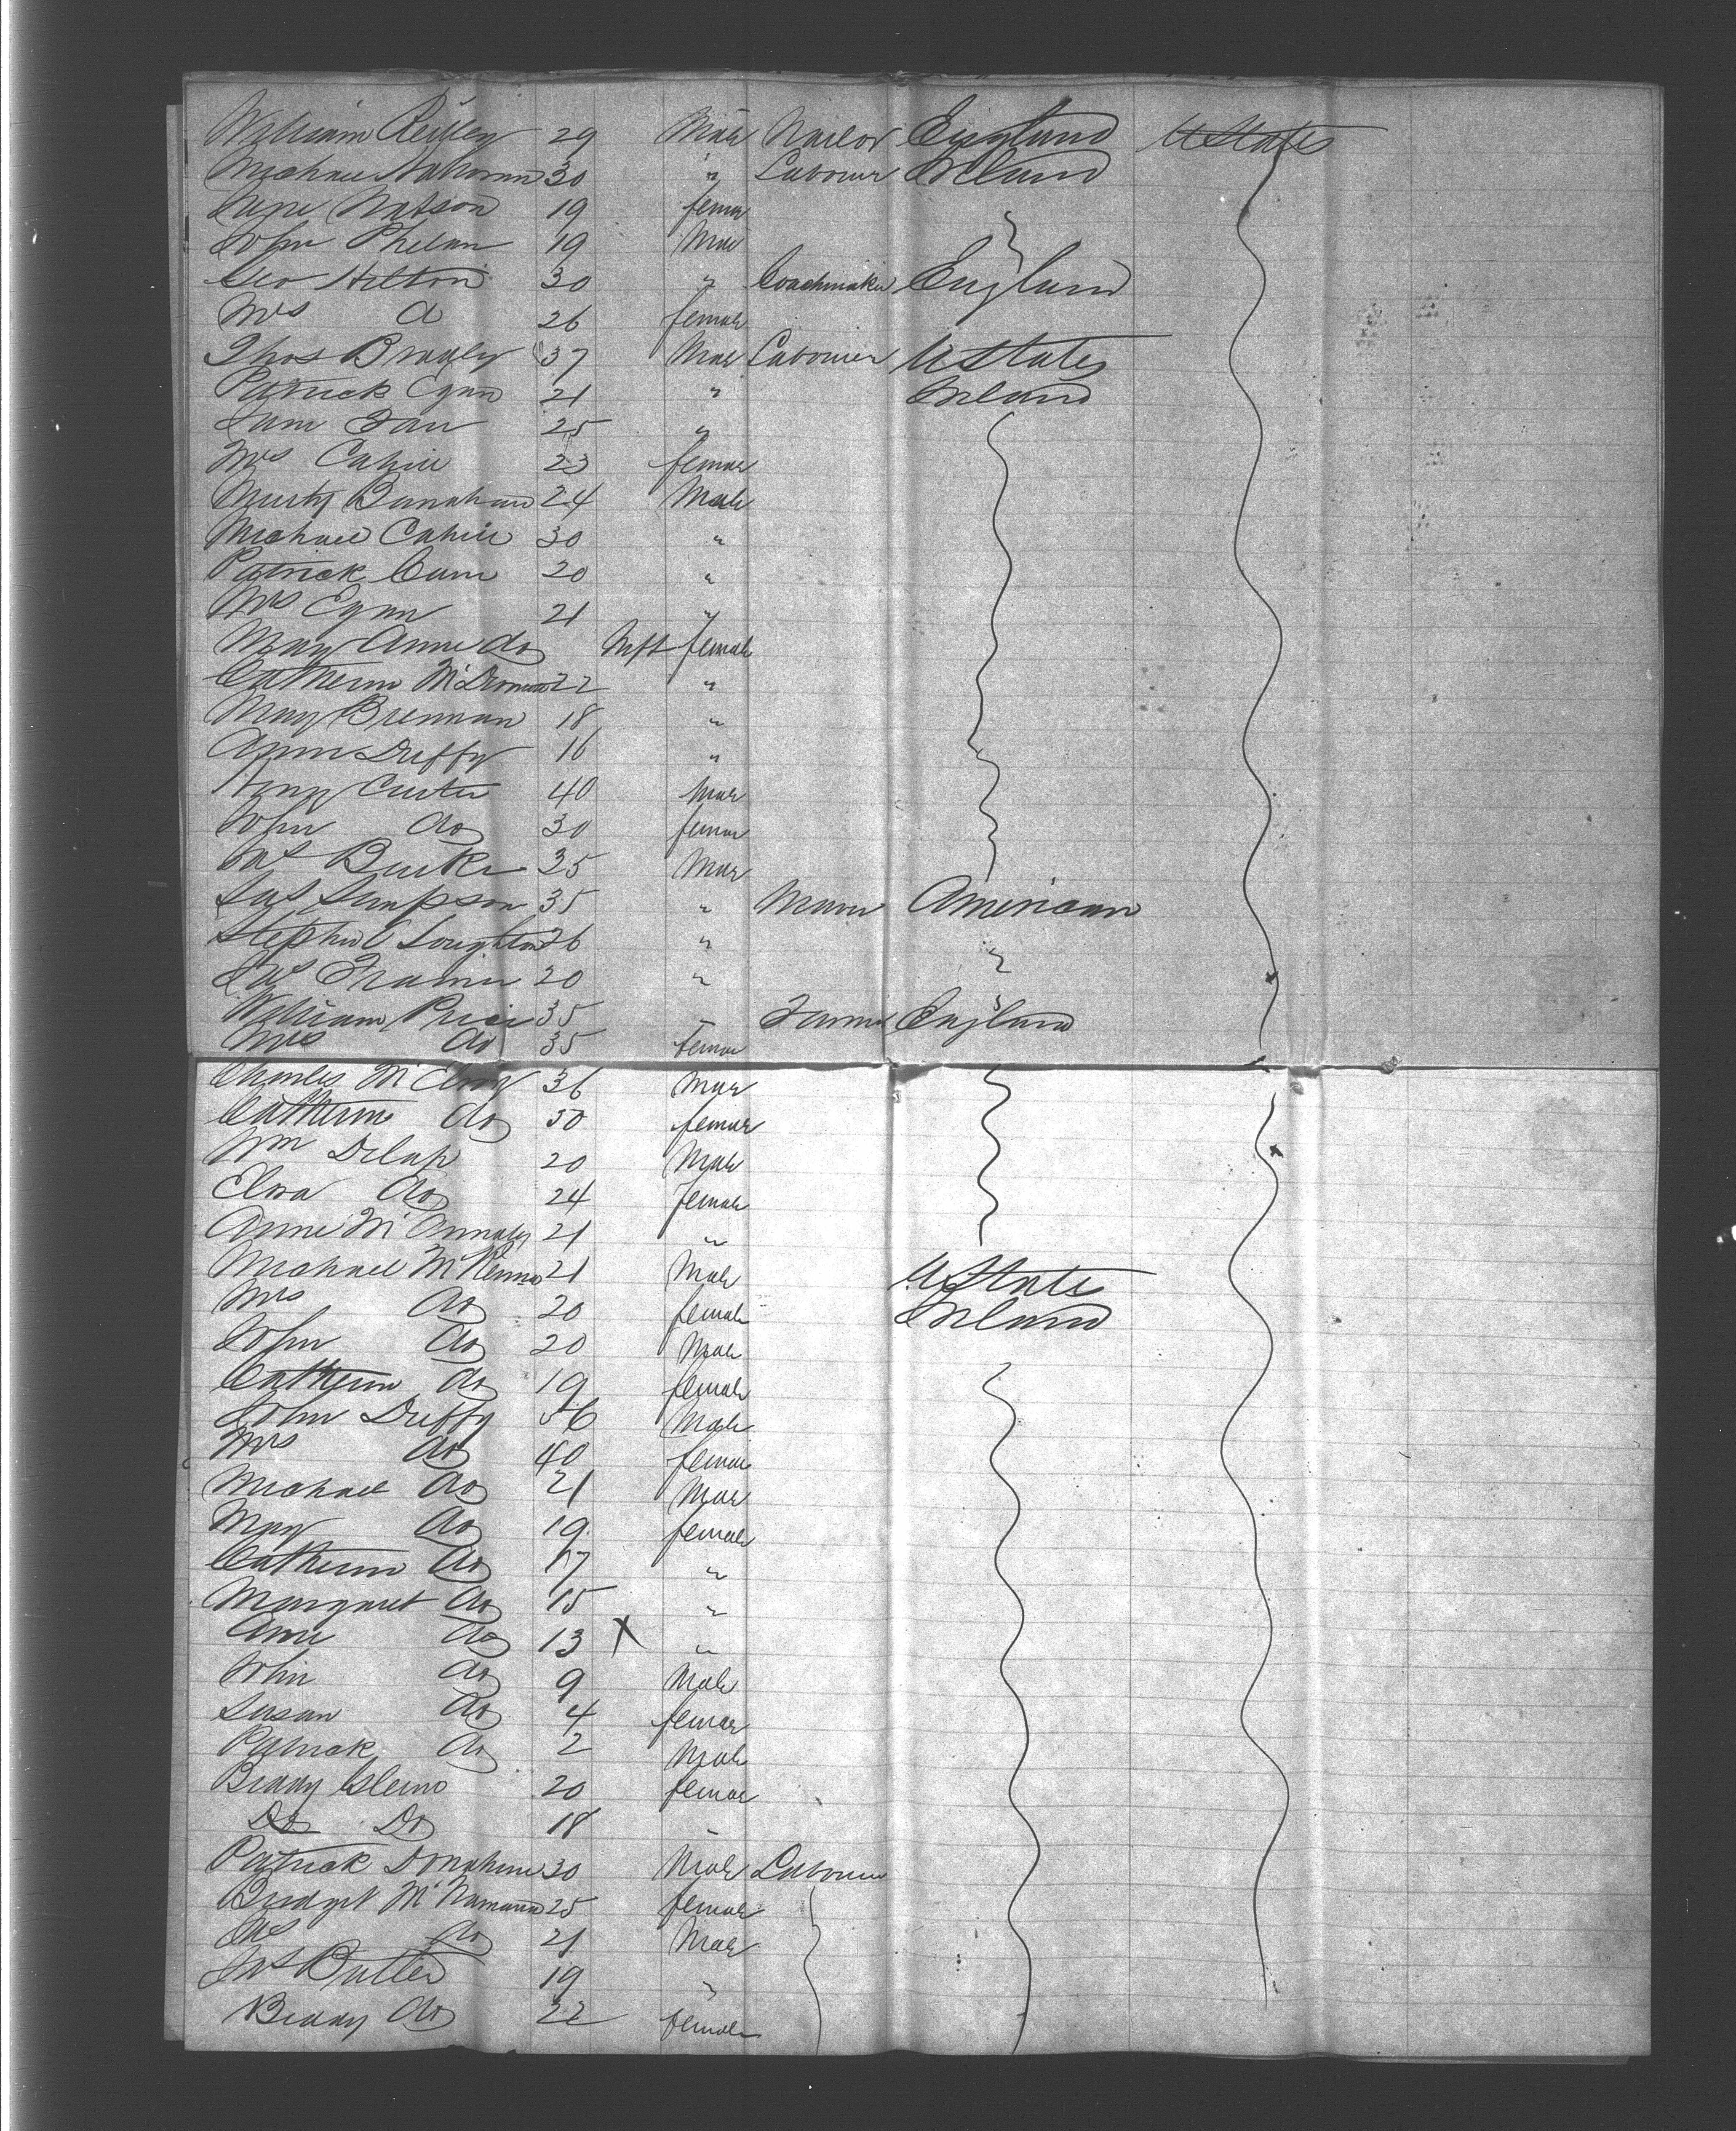 William Reilley 29 Male Nailor England U States
Michael Halloran 30 " Labourer Ireland
Jane Watson 19 female
John Phelan 19 Male
Geo Hilton 30 " Coachmaker England
Mrs do 26 female
Thos Bradley 37 Male Labourer U States
Patrick Egan 21 " Ireland
25 "
Mrs Cahill 23 female
Murty Banahan 24 Male
Michael Cahill 30 "
Patrick 20 "
Mrs Egan 21 "
Mary Anne do Inft female
Catherin 22 "
Mary Brennan 18 "
Ann Duffy 16 "
40 Male
John do 30 female
Burke 35 Male
Jas Simpson 35 " American
Stephen 26 "
Jas 20 "
William Price 35 " Farmer England
Mrs do 35 female
Charles 36 Male
Catherine do 30 female
Wm Delap 20 Male
Eliza do 24 female
Anne McAnnaly 21 "
Michael McKenna 21 Male U States
Mrs do 20 female Ireland
John do 20 Male
Catherin do 19 female
John Duffy 56 Male
Mrs do 40 female
Michael do 21 Male
Mary do 19 female
Catherin do 17 "
Margaret do 15 "
Anne do 13 X "
John do 9 Male
Susan do 4 female
Patrick do 2 Male
Biddy 20 female
Do Do 18
Patrick Donahue 30 Male Labourer
Bridget McNamara 25 female
do 21 Male
Jas Butler 19 "
Biddy do 22 female